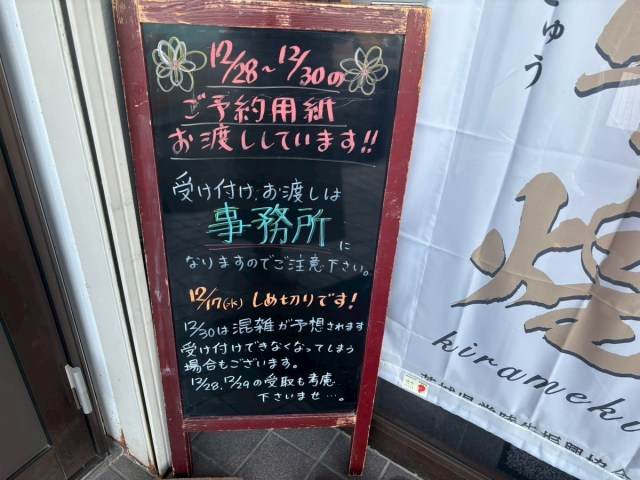 12/28～12/30の
ご予約用紙
お渡ししています!!
受け付け、お渡しは
事務所に
なりますのでご注意下さい。
12/17(水) しめ切りです!
12/30は混雑が予想されます
受け付けできなくなってしまう
場合もございます。
12/28、12/29の受取も考慮
下さいませ…。
ぎゅう
kirameki
茨城県常陸牛振興協会